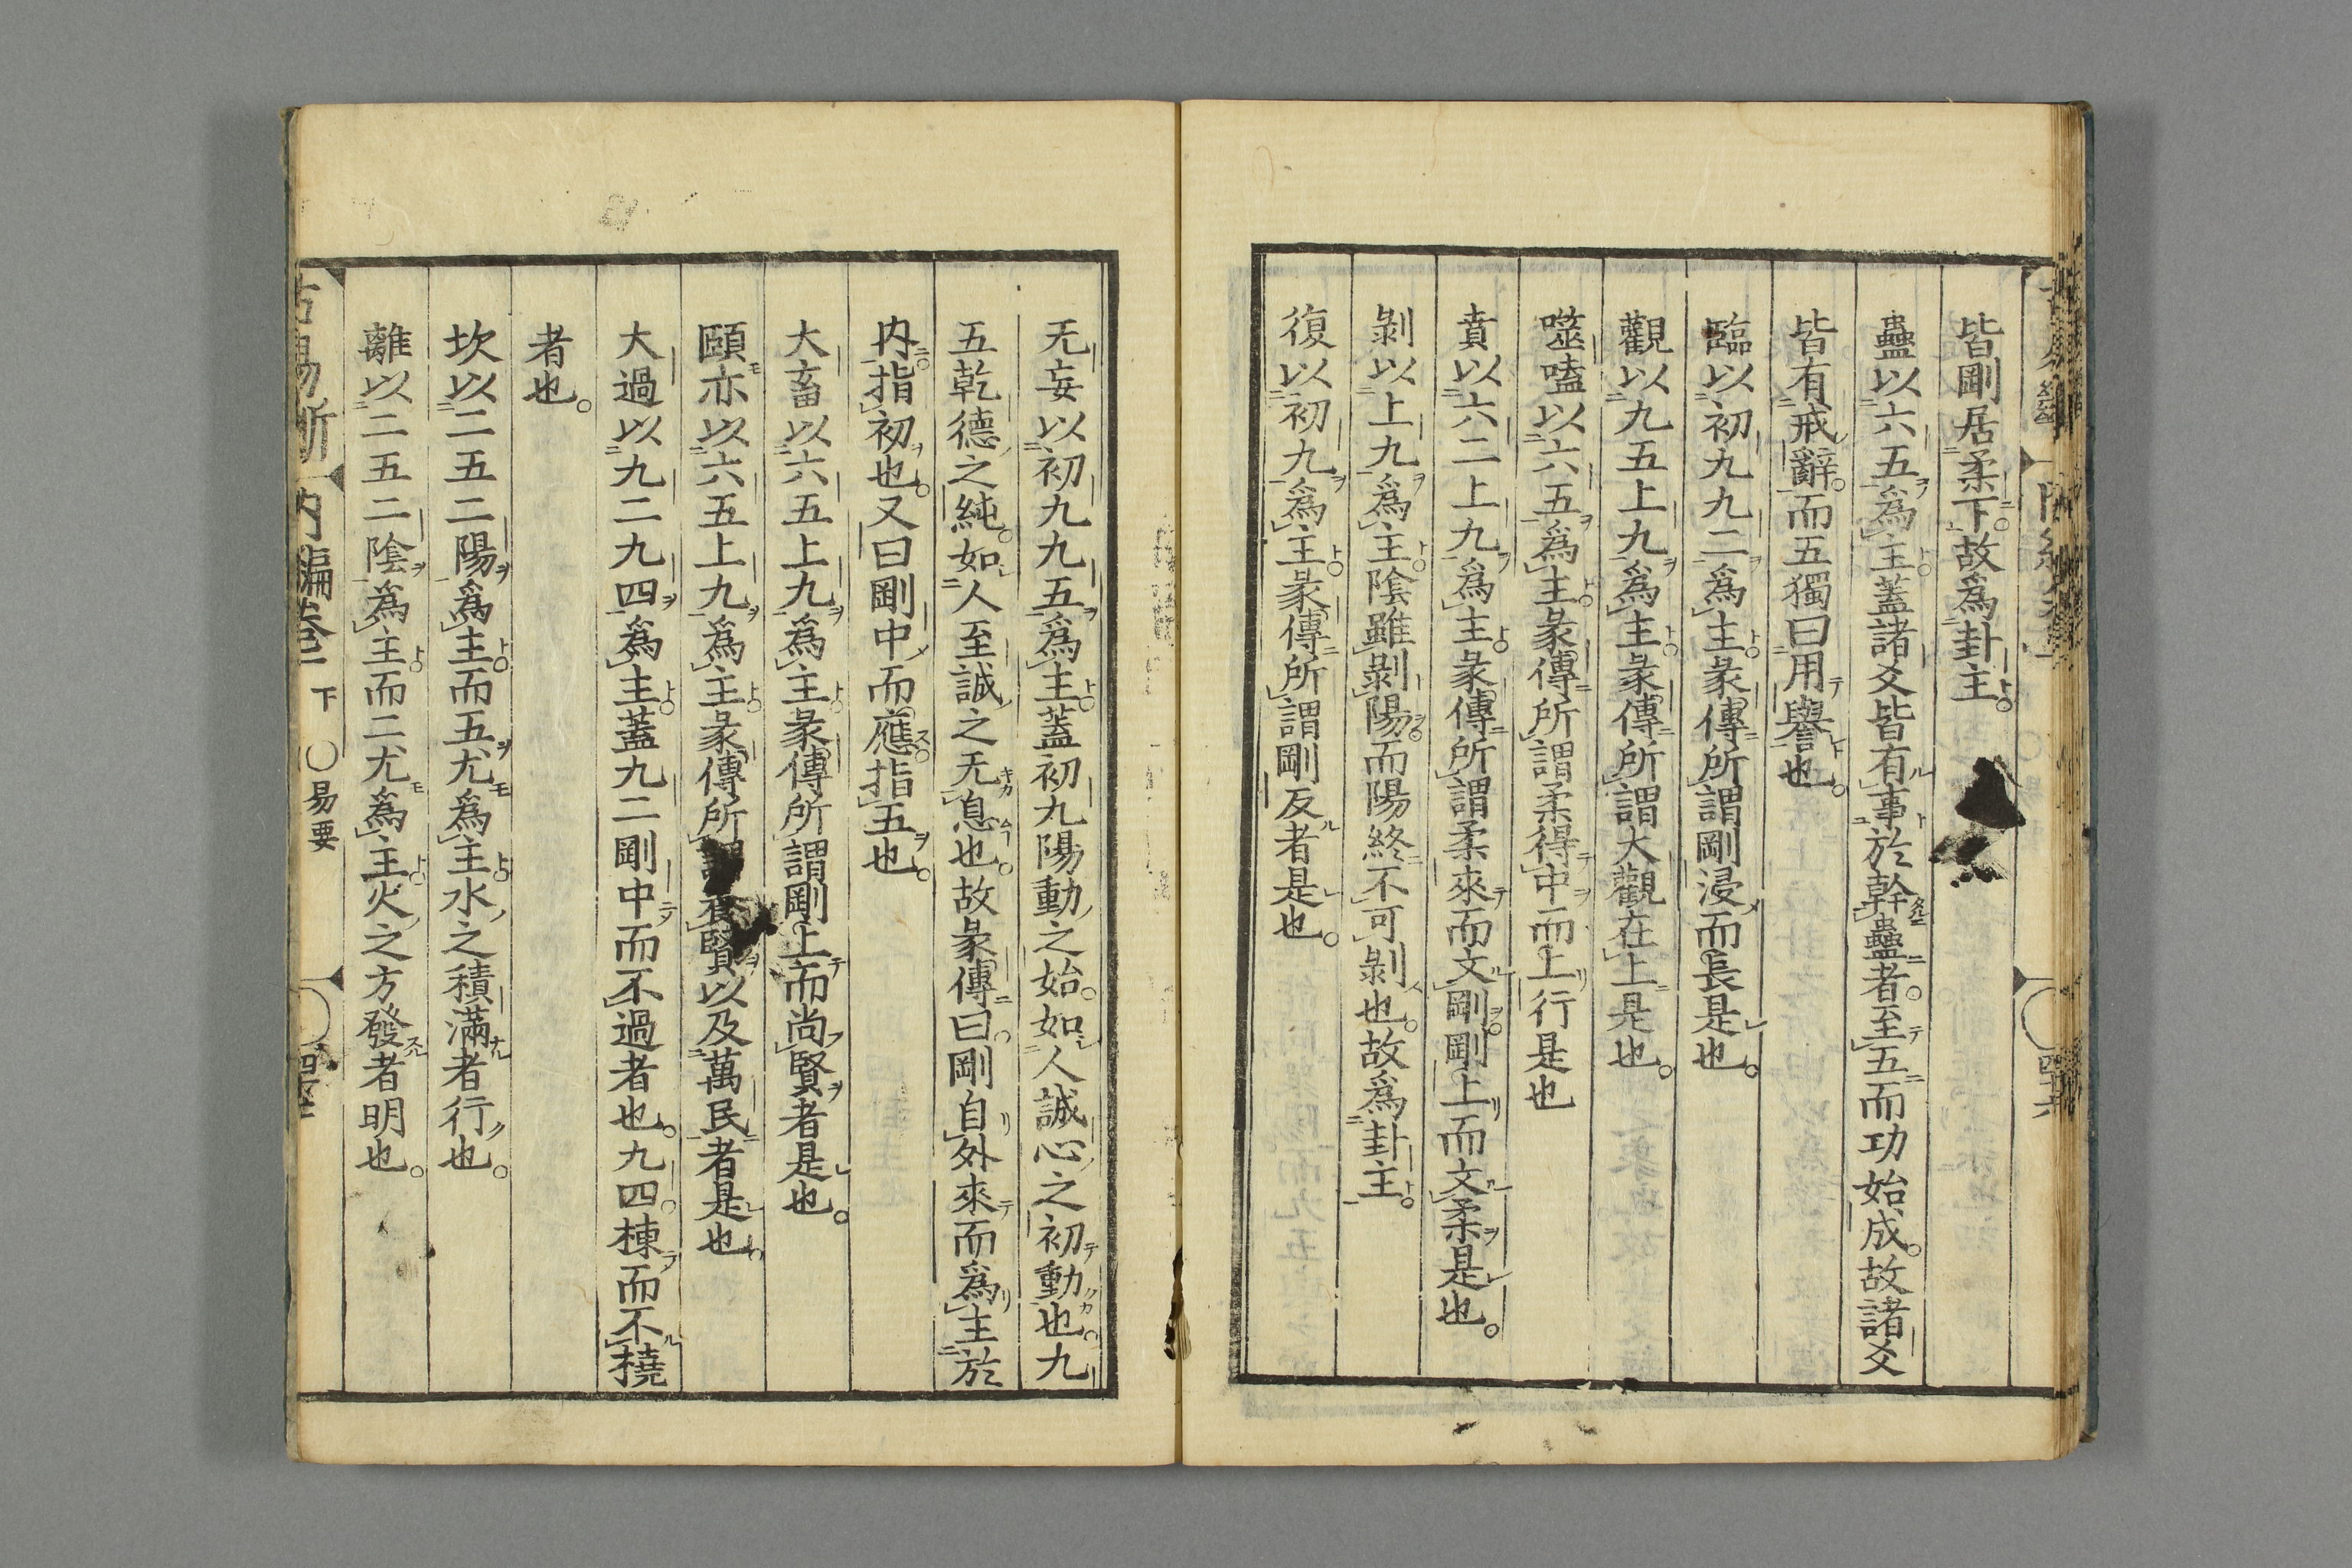 皆剛居柔下故爲卦主
蠱以六五爲主蓋諸爻皆有事於幹蠱者至五而功始成故諸爻
皆有戒辭而五獨曰用譽也
臨以初九九二爲主彖傳所謂剛浸而長是也
觀以九五上九爲主彖傳所謂大觀在上是也
噬嗑以六五爲主彖傳所謂柔得中而上行是也
賁以六二上九爲主彖傳所謂柔來而文剛剛上而文柔是也
剝以上九爲主陰雖剝陽而陽終不可剝也故爲卦主
復以初九爲主彖傳所謂剛反者是也
无妄以初九九五爲主蓋初九陽動之始如人誠心之初動也九
五乾德之純如人至誠之无息也故彖傳曰剛自外來而爲主於
内指初也又曰剛中而應指五也
大畜以六五上九爲主彖傳所謂剛上而尚賢者是也
頤亦以六五上九爲主彖傳所謂養賢以及萬民者是也
大過以九二九四爲主蓋九二剛中而不過者也九四棟而不橈
者也
坎以二五二陽爲主而五尤爲主水之積滿者行也
離以二五二陰爲主而二尤爲主火之方發者明也
古易斷 内編卷二 下 ○易要